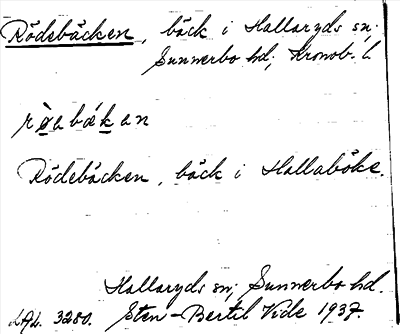 Rödebäcken, bäck i Hallaryds sn;
Sunnerbo hd; Kronob. l
rö̀abækan
Rödebäcken, bäck i Hallaböke.
Hallaryds sn; Sunnerbo hd.
LAL. 3280. Sten-Bertil Vide 1937.